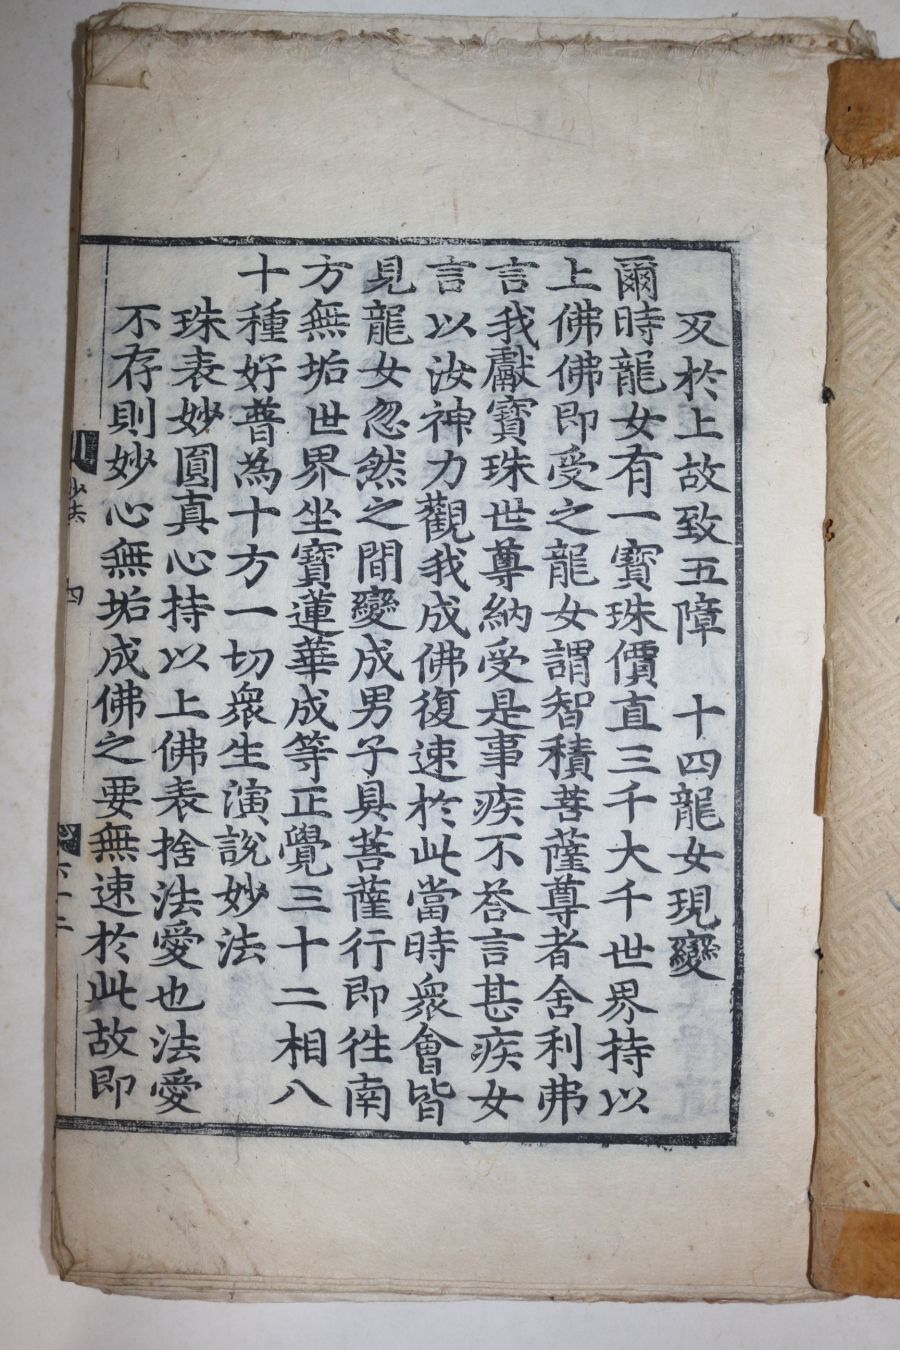 又於上故致五障　十四龍女現變
爾時龍女有一寶珠價直三千大千世界持以
上佛佛即受之龍女謂智積菩薩尊者舍利弗
言我獻寶珠世尊納受是事疾不荅言甚疾女
言以汝神力觀我成佛復速於此當時衆會皆
見龍女忽然之間變成男子具菩薩行即徃南
方無垢世界坐寶蓮華成等正覺三十二相八
十種好普為十方一切衆生演說妙法
珠表妙圓真心持以上佛表捨法愛也法愛
不存則妙心無垢成佛之要無速於此故即
妙法 四 六十二